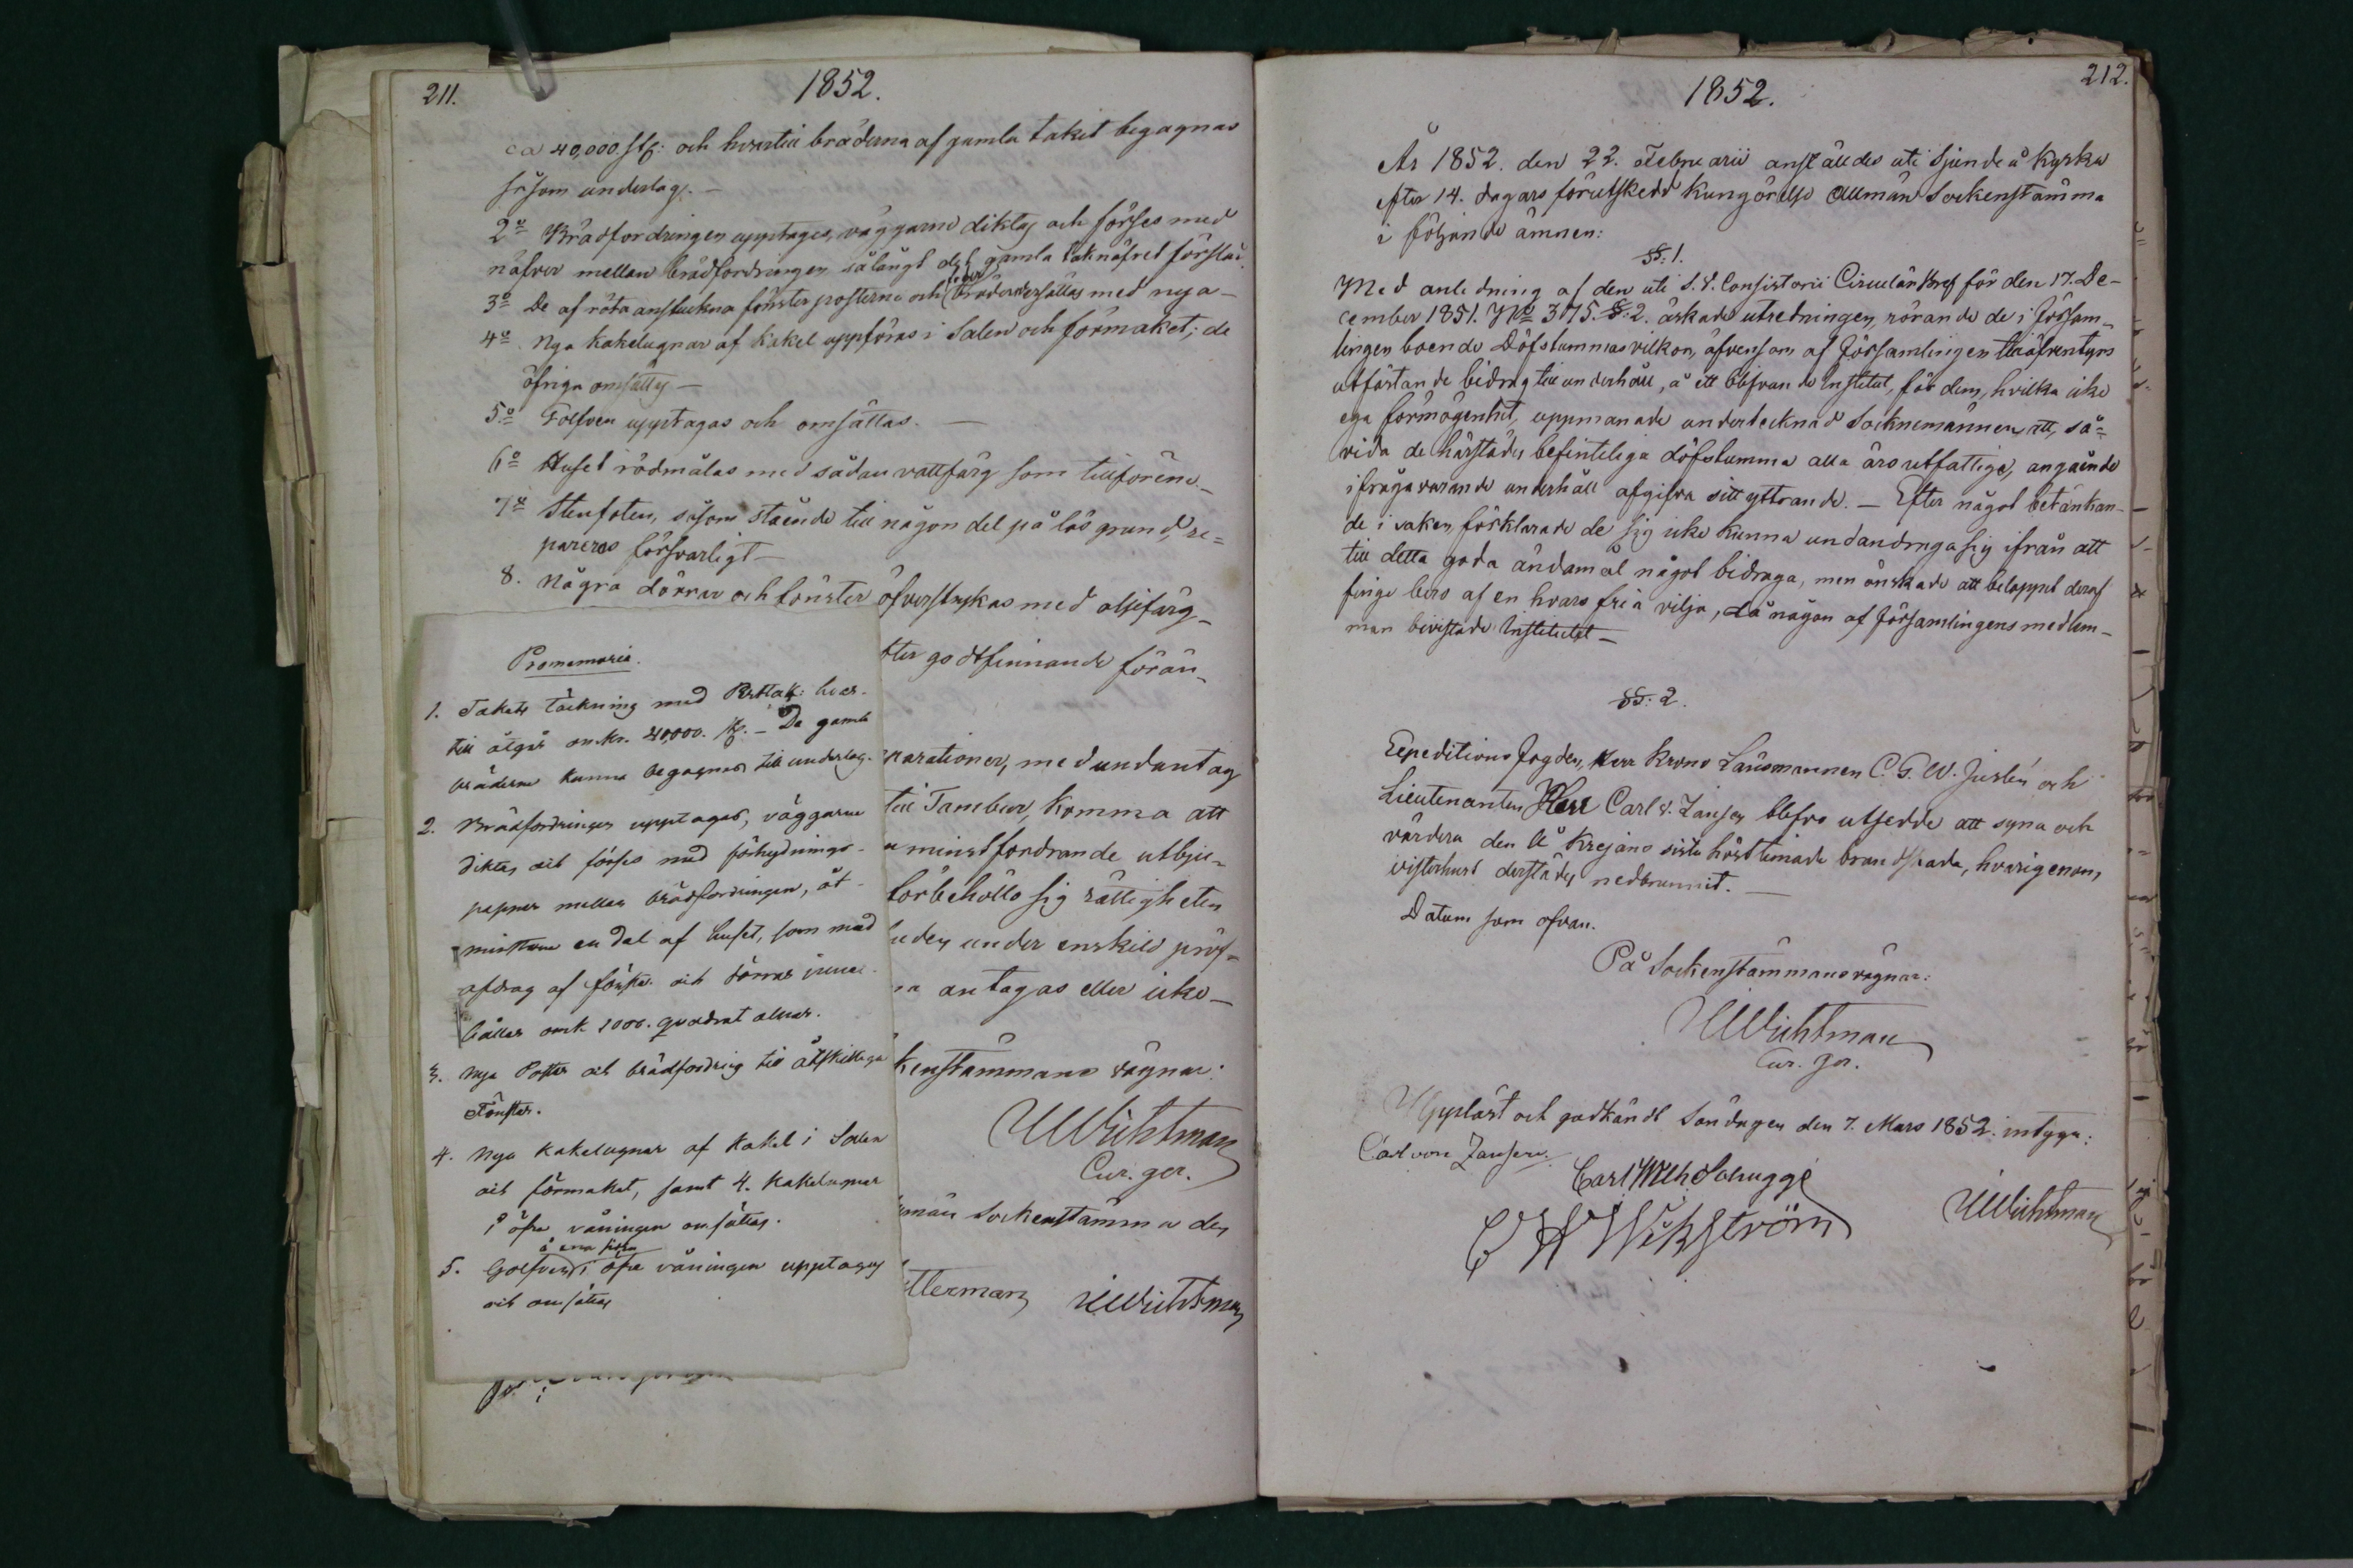 211.
1852.
ca 40,000. st: och hvartill bräderna af gamla taket begagnas
såsom underlag. —
2o Brädfordringen upptages, väggarne diktas och förses med
näfver mellan brädfordringen så långt det gamla taknäfret förslår.
3o De af röta anstuckna fönster posterne och bräder ersättas med nya —
4o Nya kakelugnar af kakel uppföras i Salen och förmaket; de
öfriga omsättas —
5o Golfven upptagas och omsättas. —
6o Huset rödmålas med sådan vattfärg som tillförene. —
7o Stenfoten, såsom stående till någon del på lös grund, re=
pareras försvarligt —
8. Några dörrar och fönster öfverstrykas med oljefärg —
tter godtfinnande förän-
parationer, med undantag
till Tambur, komma att
minstfordrande utbju-
förbehöllo sig rättigheten
uden under enskild pröf-
antagas eller icke —
kenstämmans vägnar:
UWichtman
Cur. ger.
män Sockenstämma den
tterman UWichtman
Promemoria.
1. Takets täckning med Perttak: hvar-
till åtgår omkr. 40,000. st. — De gamla
bräderna kunna begagnas till underlag.
2. Brädfordringen upptages, väggarne
diktas och förses med förhydnings-
papper mellan brädfordringen, åt-
minstone en del af huset, som med
afdrag af fönster och dörrar inne-
håller omk 1000. quadrat alnar.
3. Nya Poster och brädfordring till åtskilliga
Fönster.
4. Nya kakelugnar af kakel i Salen
och förmaket, samt 4. kakelugnar
i öfra våningen omsättas.
å ena sidan
5. Golfven i öfra våningen upptages
och omsättas
212.
1852.
År 1852. den 22. Februarii anställdes uti Sjundeå Kyrka
efter 14. dagars förutskedd kungörelse Allmän Sockenstämma
i följande ämnen:
§§: 1.
Med anledning af den uti S. V. Consistorii Circulär Bref för den 17. De-
cember 1851. No 375. §: 2. äskade utredningen, rörande de i försam-
lingen boende Döfstummas vilkor, äfvensom af församlingen tilläfventyrs
utfästande bidrag till underhåll, å ett blifvande Institut, för dem, hvilka icke
ega förmögenhet, uppmanade undertecknad Socknemännen att, så=
vida de härstädes befintliga döfstumma alla äro utfattige, angående
ifrågavarande underhåll afgifva sitt yttrande. — Efter något betänkan-
de i saken, förklarade de sig icke kunna undandraga sig ifrån att
till detta goda ändamål något bidraga, men önskade att beloppet deraf
finge bero af en hvars fria vilja, då någon af församlingens medlem-
mar bivistade Institutet —
§§: 2.
Expeditions Fogden, Herr Krono Länsmannen C. G. W. Juslén och
Lieutenanten Herr Carl v. Jansen blefvo utsedde att syna och
värdera den å Krejans sista höst timade brandskada, hvarigenom
visthuset derstädes nedbrunnit. —
Datum som ofvan.
På Sockenstämmans vägnar:
UWichtman
Cur. ger.
Uppläst och godkändt Söndagen den 7. Mars 1852. intyga:
Carl von Jansen.
Carl Wilh Schugge
UWichtman